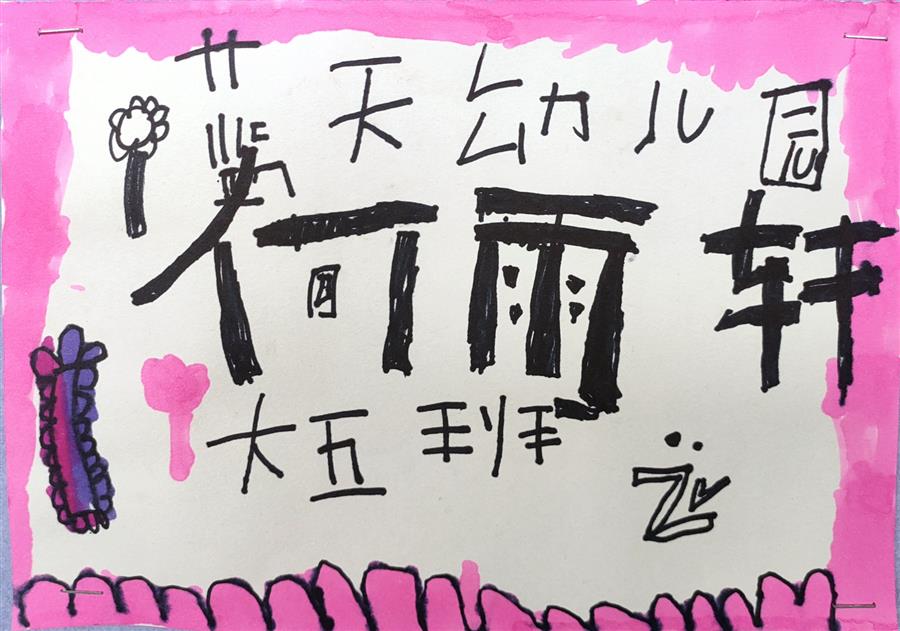 蓝天幼儿园
何雨轩
大五班